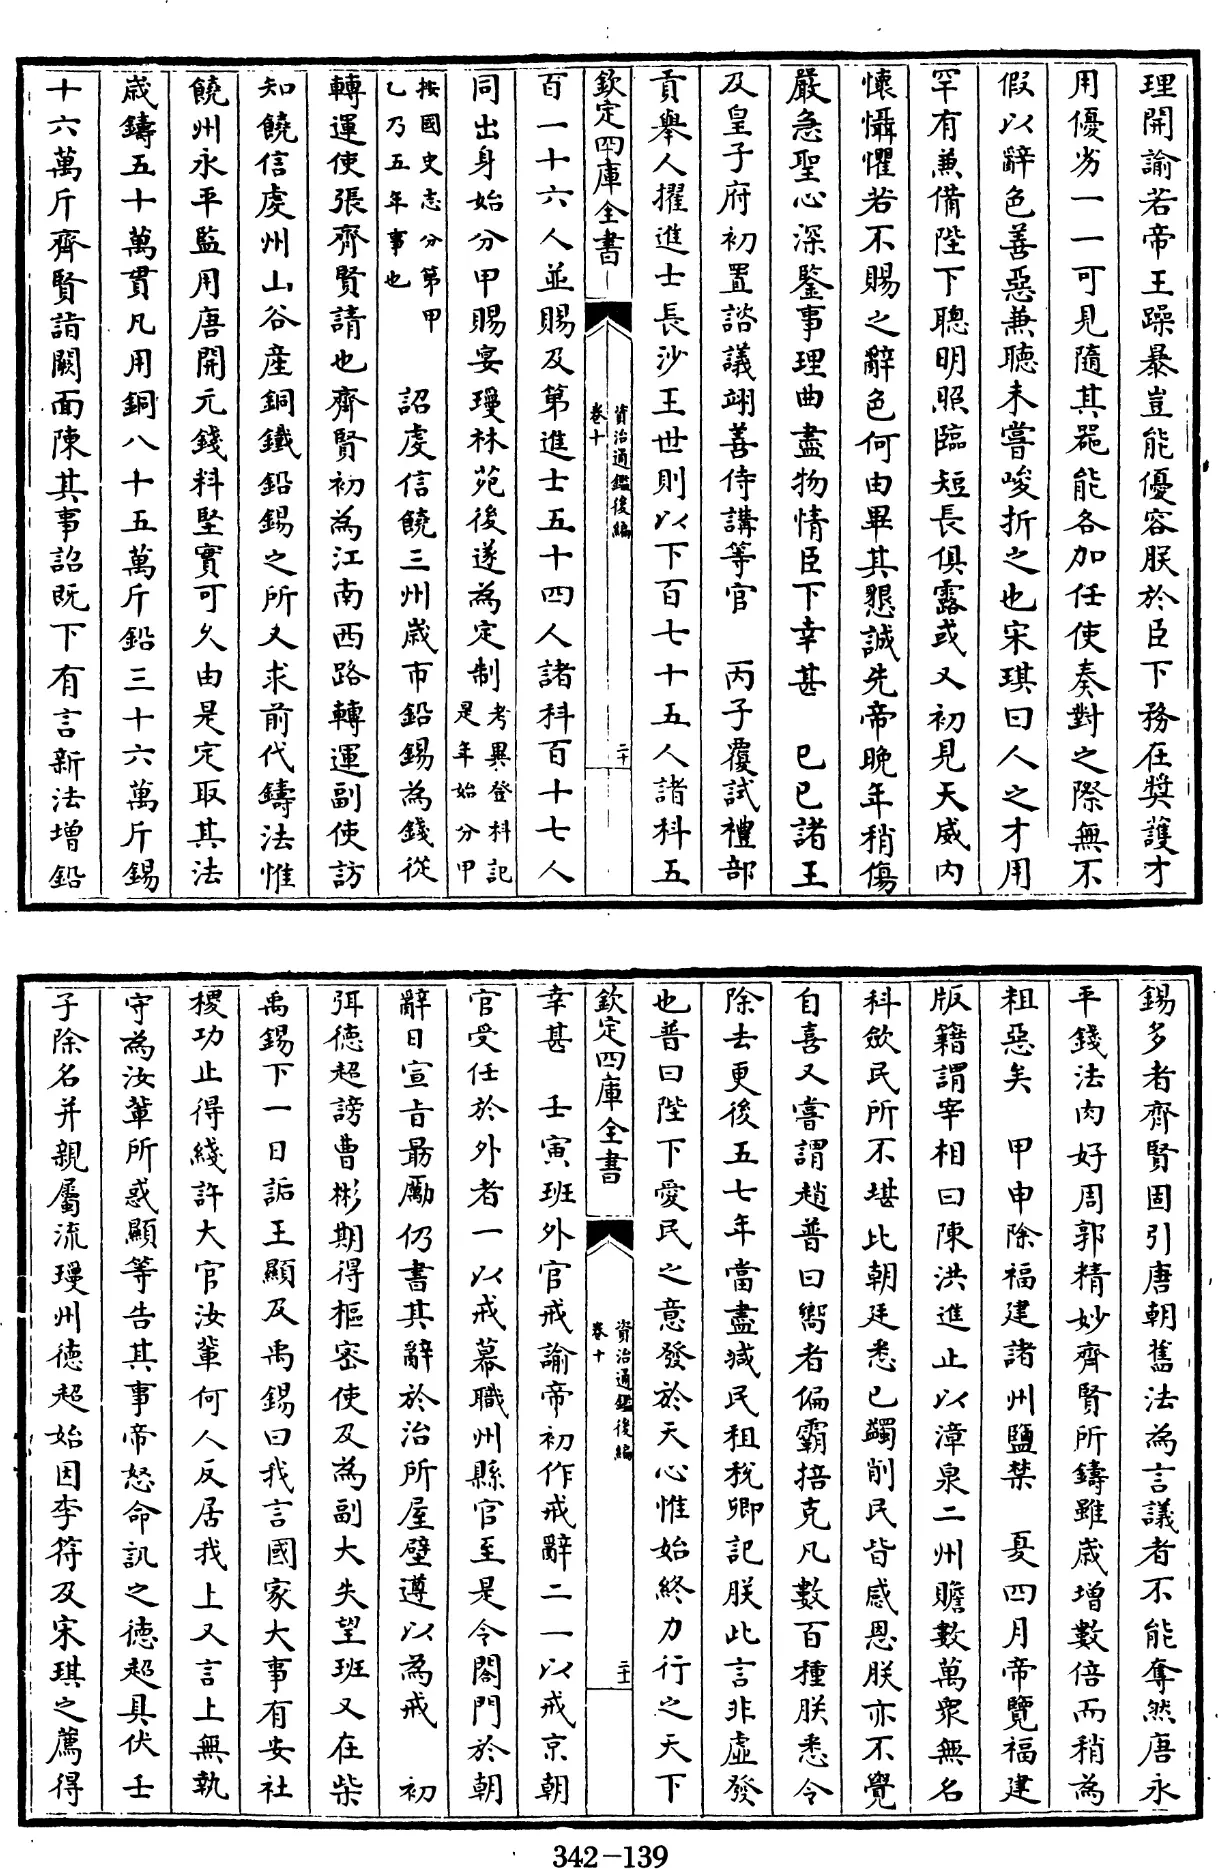 理開諭若帝王躁暴豈能優容朕於臣下務在奬護才
用優劣一一可見隨其器能各加任使奏對之際無不
假以辭色善惡兼聽未嘗峻折之也宋琪曰人之才用
罕有兼備陛下聰明照臨短長俱露或又初見天威内
懷懾懼若不賜之辭色何由畢其懇誠先帝晚年稍傷
嚴急聖心深鑒事理曲盡物情臣下幸甚　已巳諸王
及皇子府初置諮議翊善侍講等官　丙子覆試禮部
貢舉人擢進士長沙王世則以下百七十五人諸科五
欽定四庫全書
資治通鑑後編
卷十
二十
百一十六人並賜及第進士五十四人諸科百十七人
同出身始分甲賜宴瓊林苑後遂為定制考異登科記
是年始分甲
按國史志分第甲
乙乃五年事也
詔虔信饒三州歳市鉛錫為錢從
轉運使張齊賢請也齊賢初為江南西路轉運副使訪
知饒信虔州山谷産銅鐵鉛錫之所又求前代鑄法惟
饒州永平監用唐開元錢料堅實可久由是定取其法
歳鑄五十萬貫凡用銅八十五萬斤鉛三十六萬斤錫
十六萬斤齊賢詣闕面陳其事詔既下有言新法增鉛
錫多者齊賢固引唐朝舊法為言議者不能奪然唐永
平錢法肉好周郭精妙齊賢所鑄雖歳增數倍而稍為
粗惡矣　甲申除福建諸州鹽禁　夏四月帝覽福建
版籍謂宰相曰陳洪進止以漳泉二州贍數萬衆無名
科斂民所不堪比朝廷悉已蠲削民皆感恩朕亦不覺
自喜又嘗謂趙普曰嚮者偏霸掊克凡數百種朕悉令
除去更後五七年當盡減民租税卿記朕此言非虚發
也普曰陛下愛民之意發於天心惟始終力行之天下
欽定四庫全書
資治通鑑後編
卷十
二十一
幸甚　壬寅班外官戒諭帝初作戒辭二一以戒京朝
官受任於外者一以戒幕職州縣官至是令閤門於朝
辭日宣旨朂勵仍書其辭於治所屋壁遵以為戒　初
弭德超謗曹彬期得樞密使及為副大失望班又在柴
禹錫下一日詬王顯及禹錫曰我言國家大事有安社
稷功止得綫許大官汝輩何人反居我上又言上無執
守為汝輩所惑顯等告其事帝怒命訊之德超具伏壬
子除名并親屬流瓊州德超始因李符及宋琪之薦得
342-139